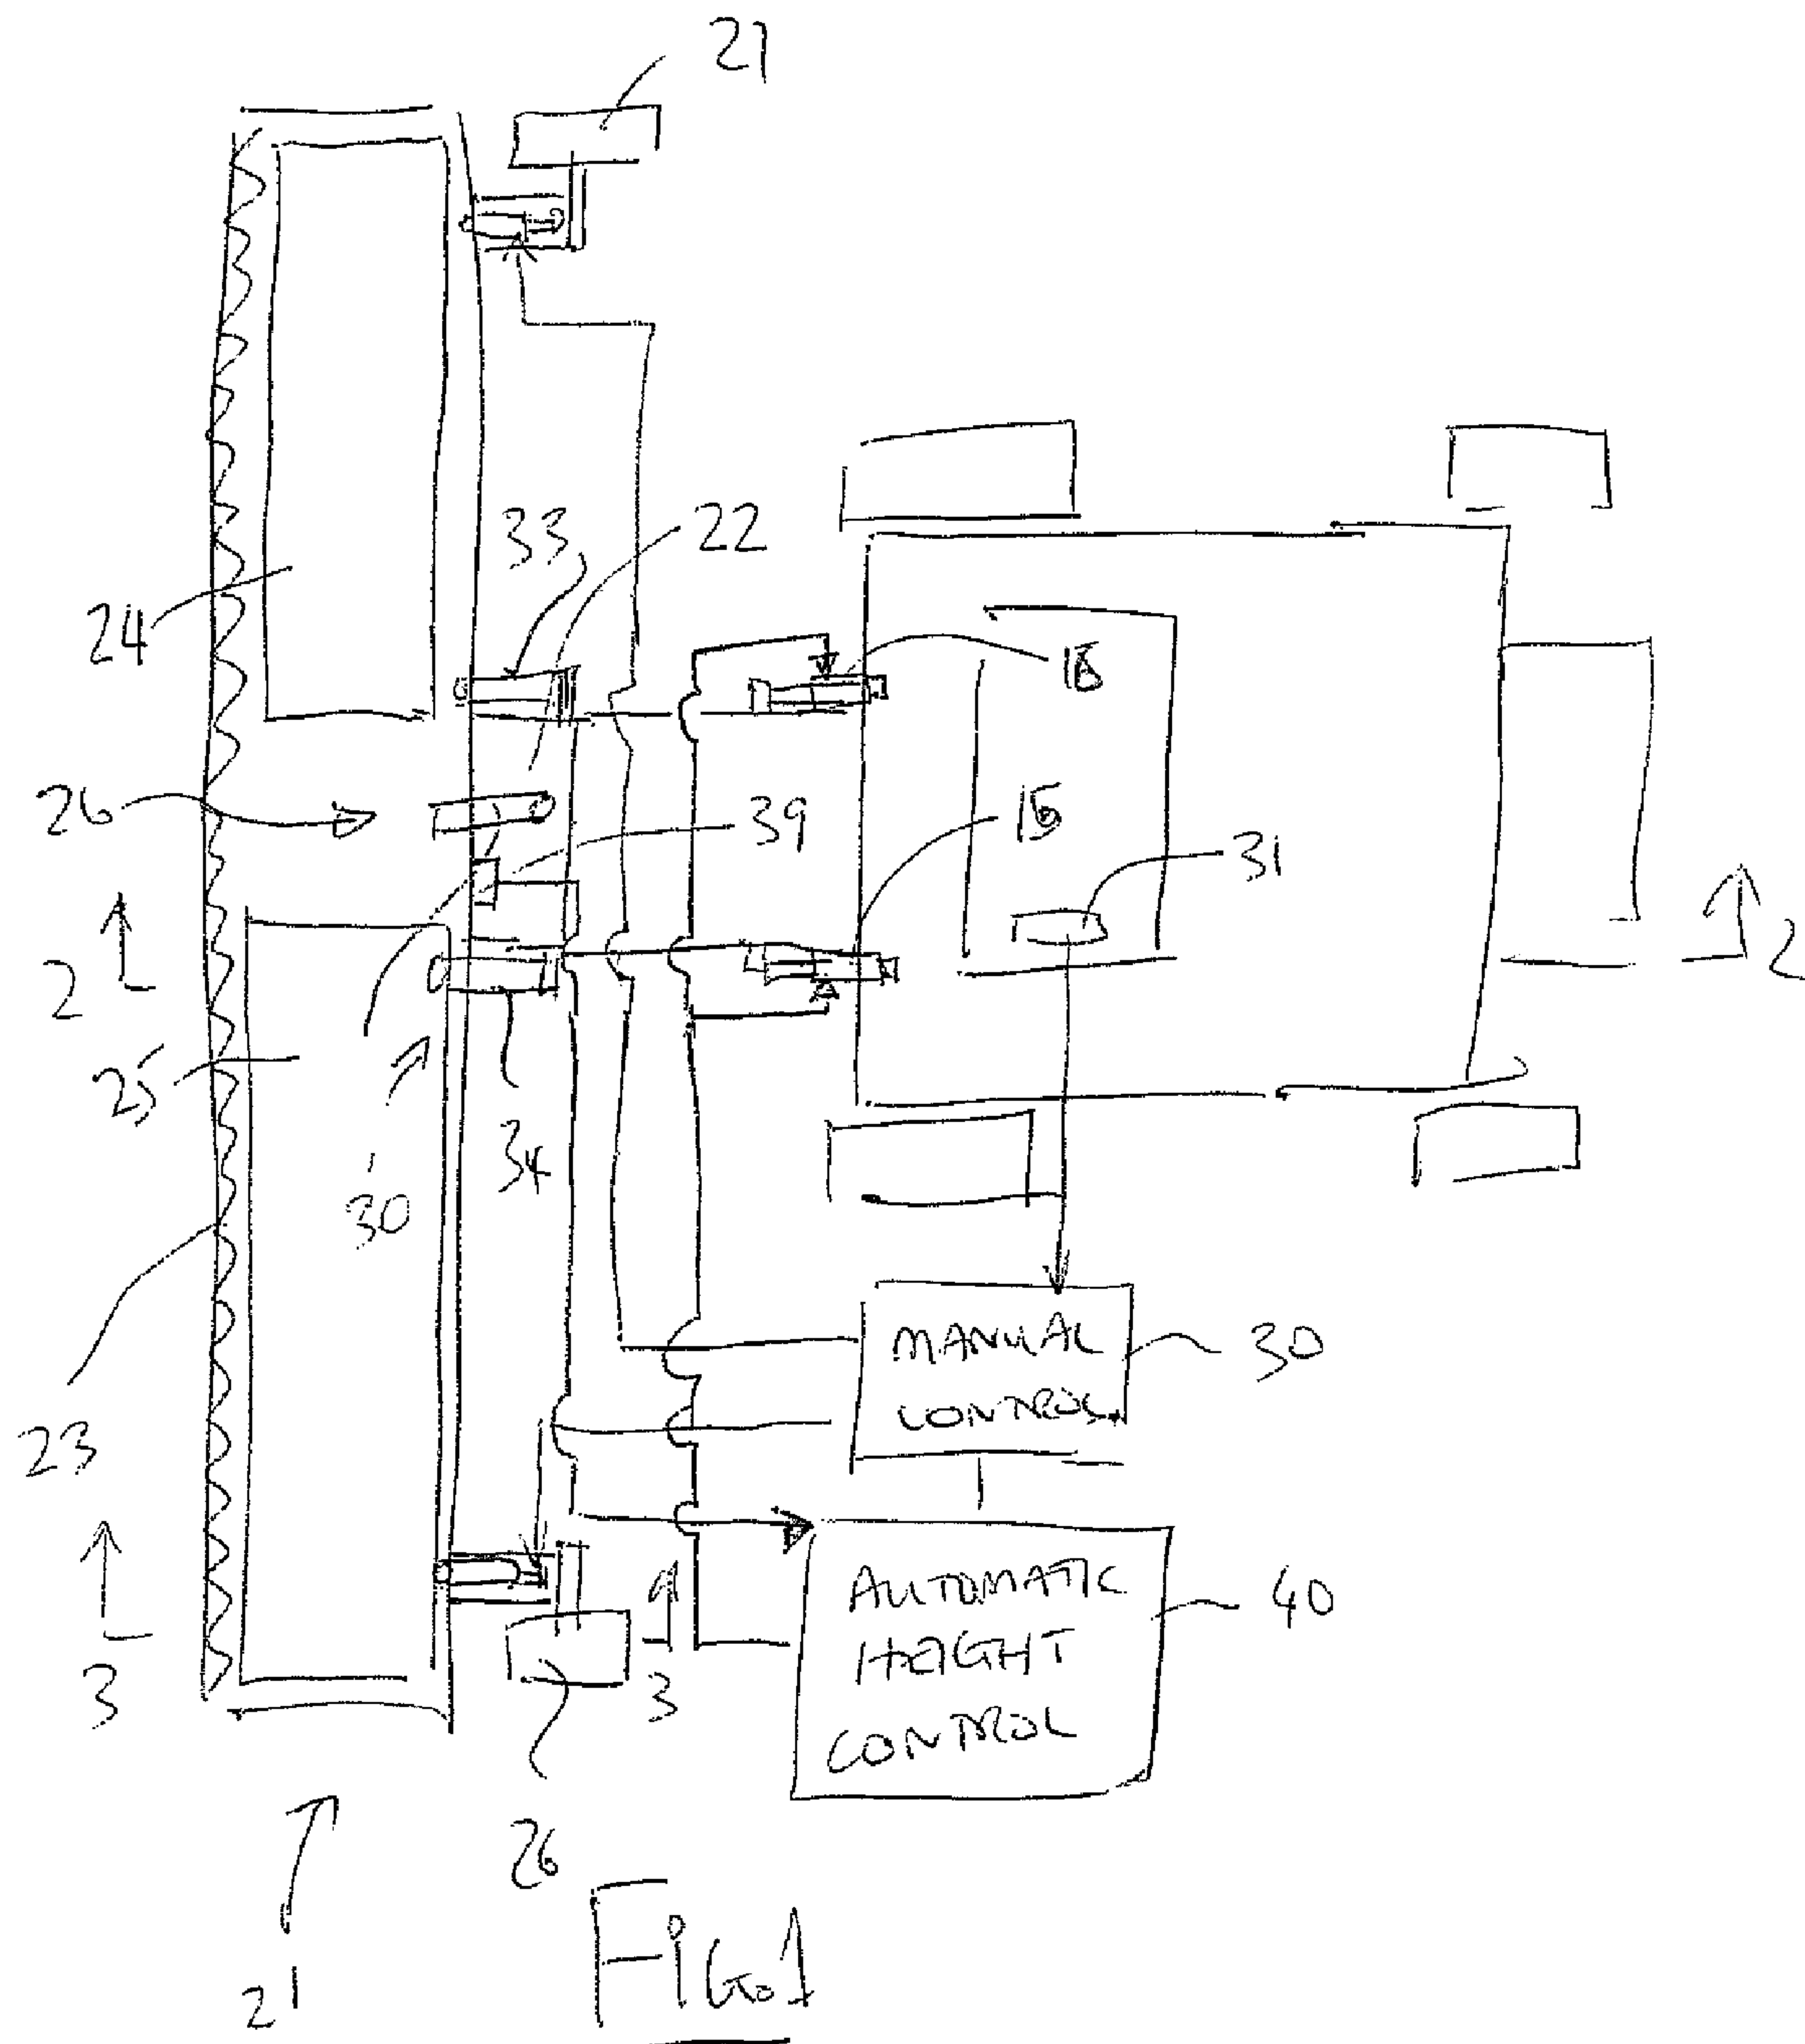 21
33
22
24
18
26
39
15
31
2
2
25
34
30
MANUAL
CONTROL
30
23
AUTOMATIC
HEIGHT
CONTROL
40
3
3
26
21
FIG. 1